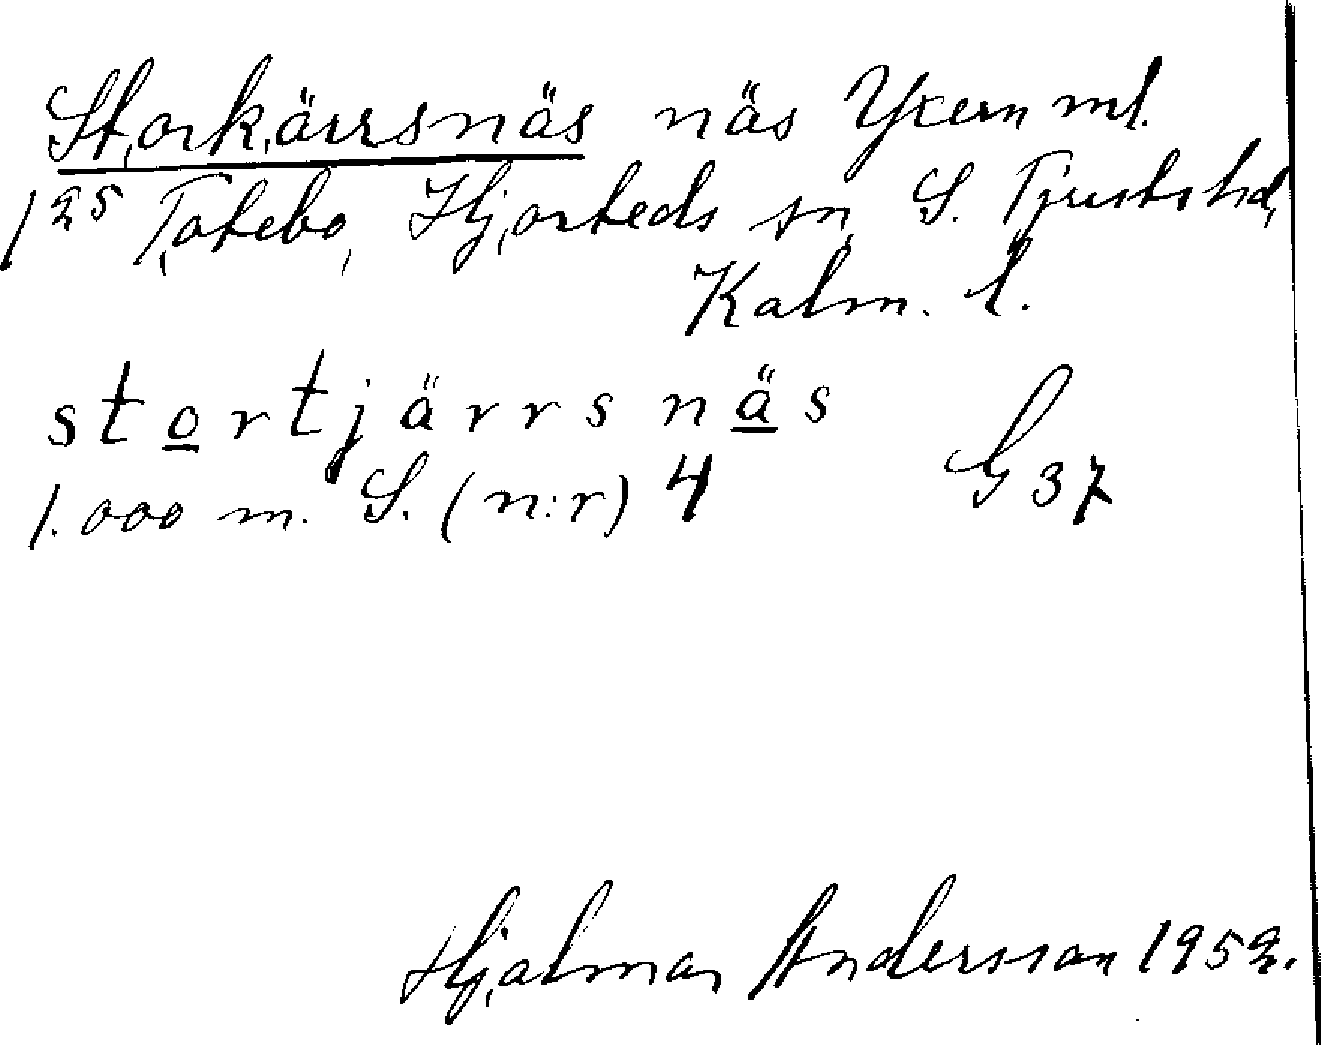 Storkärrsnäs näs Yxern ml.
1²⁵ Totebo, Hjorteds sn, S. Tjusts hd,
Kalm. l.
stortjärrsnäs
1.000 m. S. (n:r) 4 G 37
Hjalmar Andersson 1952.